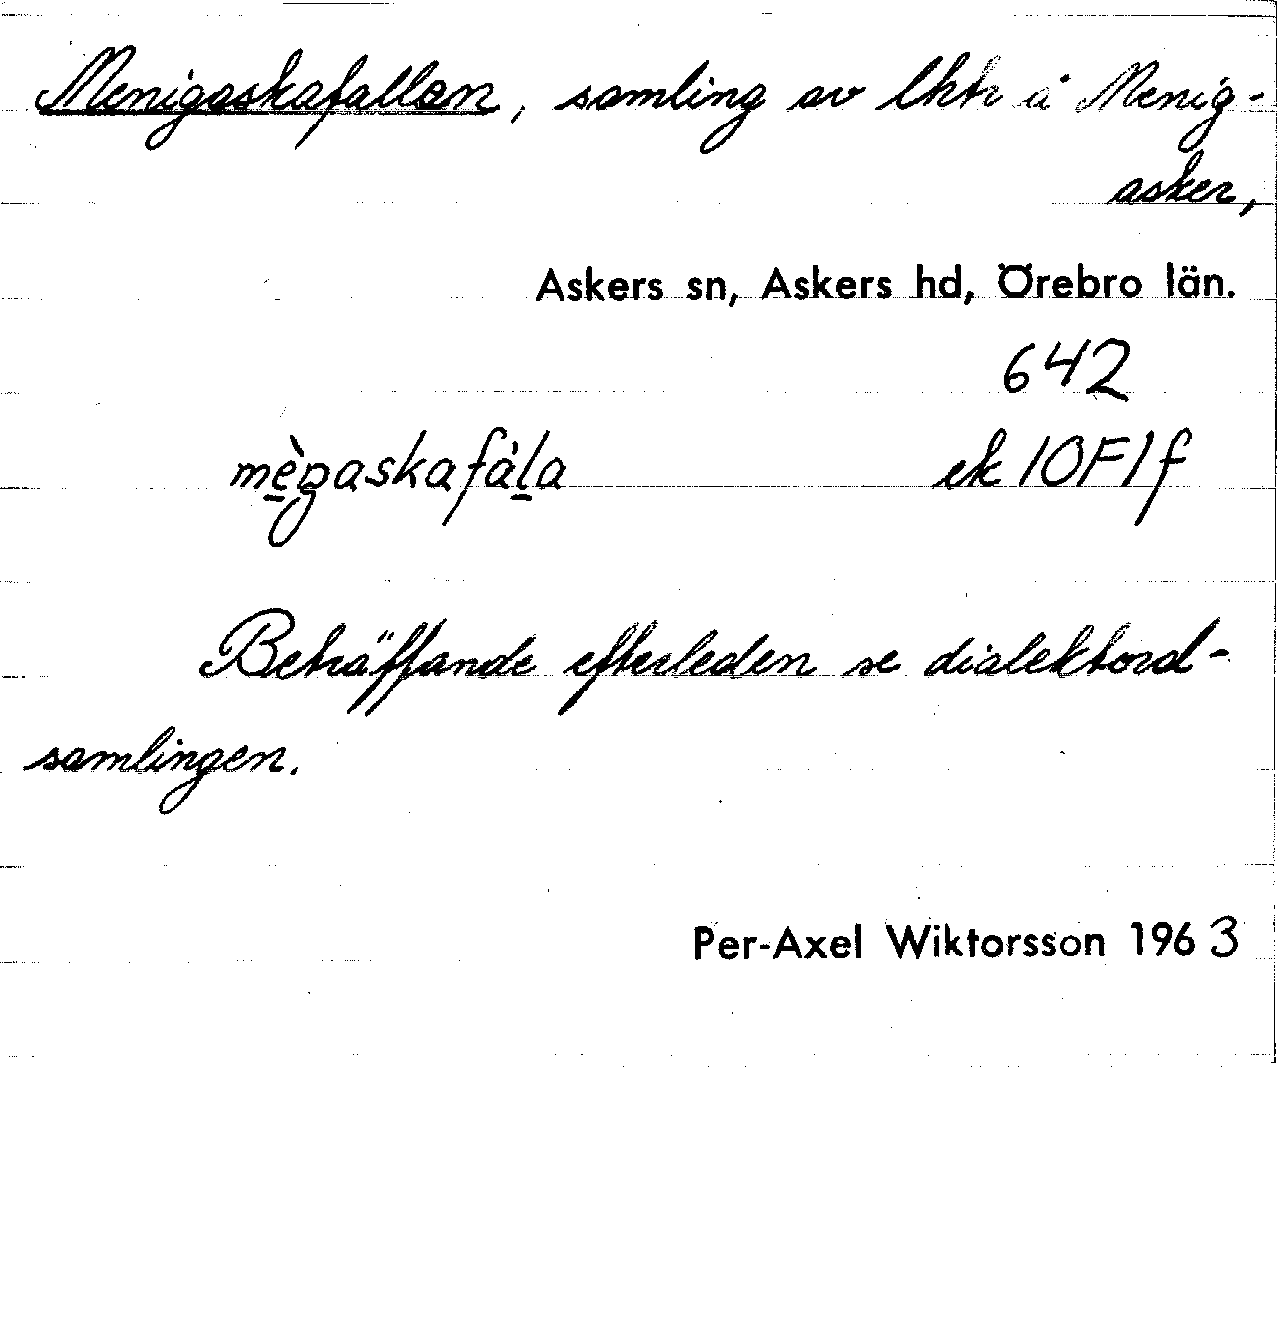 Menigaskafallen, samling av lkhr å Menig-
asker,
Askers sn, Askers hd, Örebro län.
642
mègaskafála ek 10F1f
Beträffande efterleden se dialektord-
samlingen.
Per-Axel Wiktorsson 1963